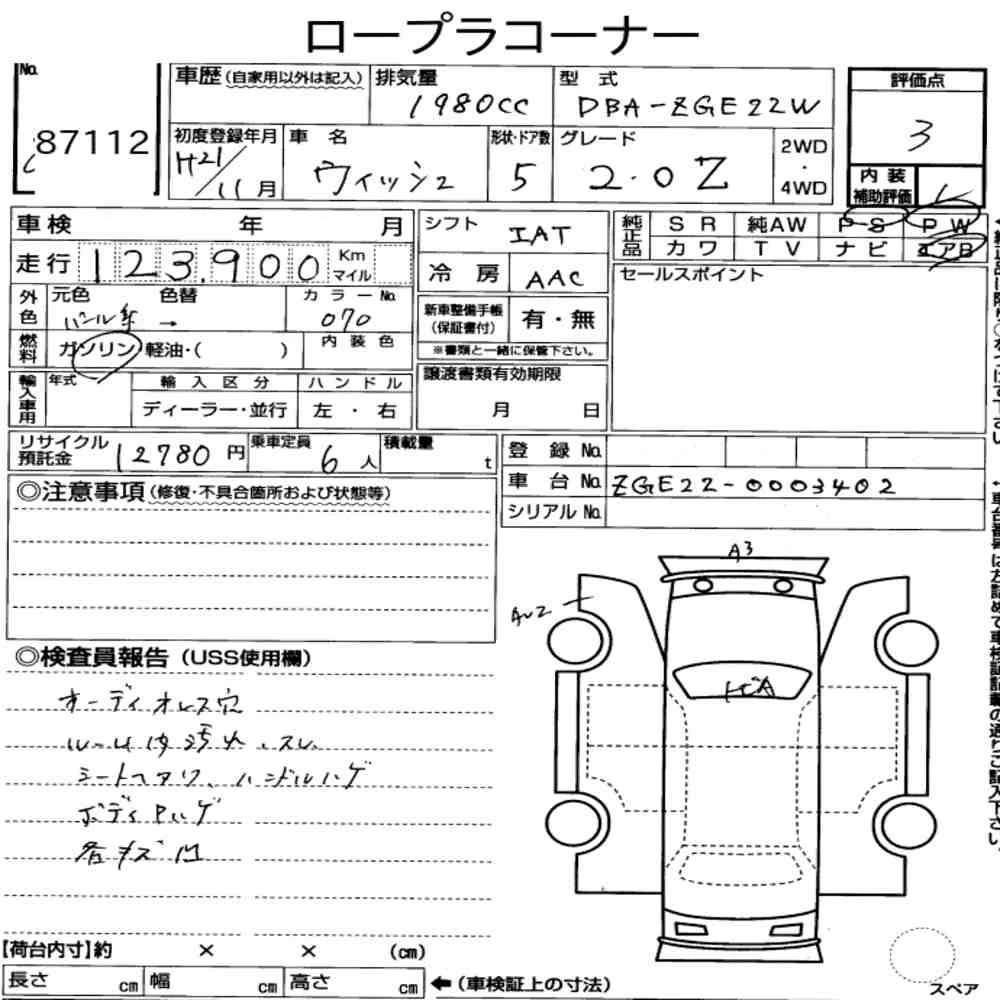 ロープラコーナー
No.
87112
車歴 (自家用以外は記入)
排気量
1980cc
型 式
DBA-ZGE22W
評価点
3
初度登録年月
H21/11月
車 名
ウィッシュ
形状・ドア数
5
グレード
2.0Z
2WD
・
4WD
内装
補助評価
車検 年 月
走行 123,900 Km マイル
シフト
IAT
冷 房
AAC
純正品
SR 純AW PS PW
カワ TV ナビ エアB
セールスポイント
外色
元色 色替
パール系 →
カラーNo.
070
新車整備手帳
(保証書付)
有・無
※書類と一緒に保管下さい。
燃料
ガソリン 軽油・( )
内装色
輸入車用
年式
輸入区分
ディーラー・並行
ハンドル
左 ・ 右
譲渡書類有効期限
月 日
リサイクル
預託金
12780円
乗車定員
6人
積載量
t
登 録 No.
車 台 No. ZGE22-0003402
シリアル No.
◎注意事項 (修復・不具合箇所および状態等)
◎検査員報告 (USS使用欄)
オーディオレス穴
ルーム内汚れ、スレ
シートヘタリ、ハンドルハゲ
ボディPハゲ
各キズ凹
A3
AU2
【荷台内寸】約 × × (cm)
長さ cm 幅 cm 高さ cm ←(車検証上の寸法)
スペア
←純正品に限り○をつけて下さい
←車台番号は左詰めで車検証記載の通りご記入下さい。